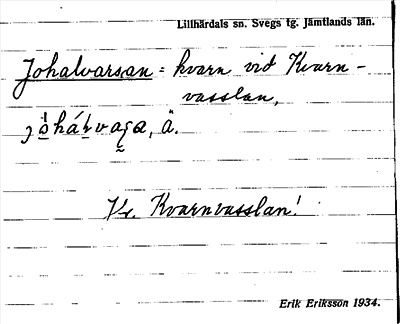 Lillhärdals sn. Svegs tg. Jämtlands län.
Johalvarsan = kvarn vid Kvarn-
vasslan,
Å.
Kr. Kvarnvasslan!
Erik Eriksson 1934.